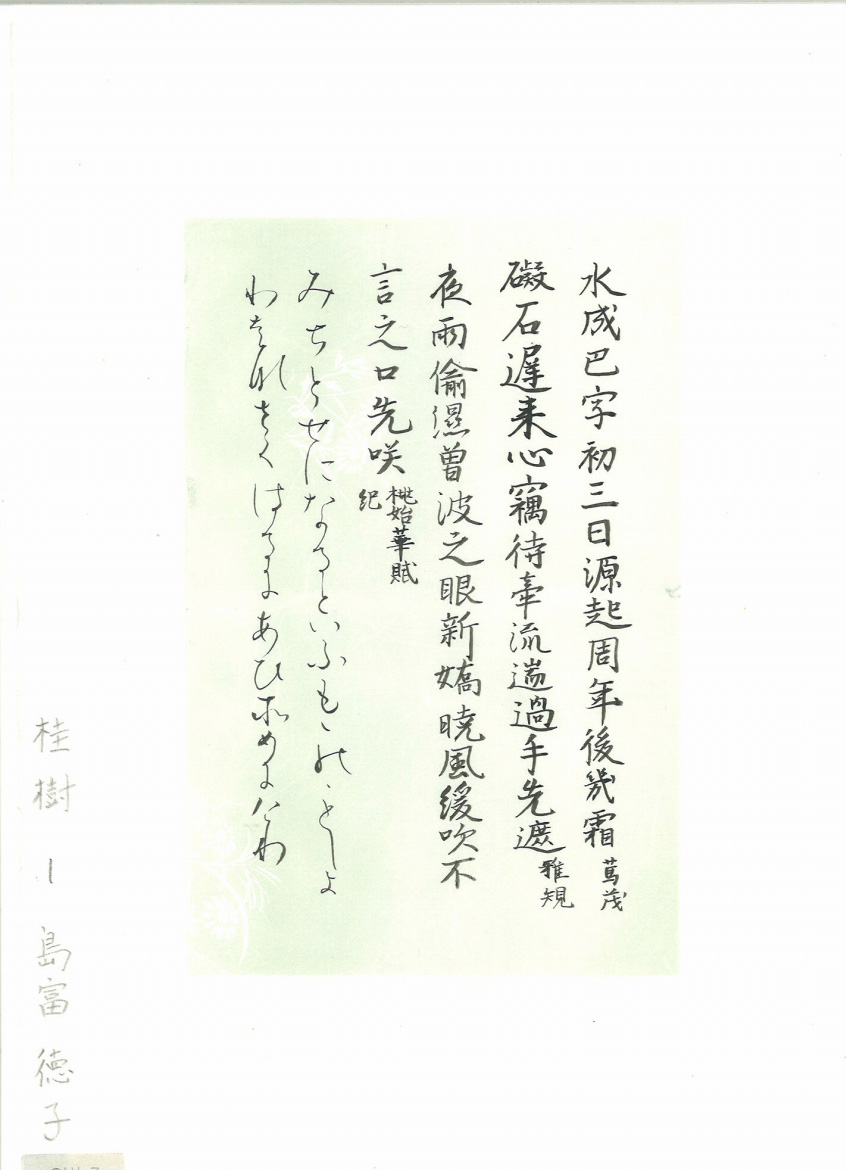 水成巴字初三日源起周年後幾霜 篤茂
礙石遅来心竊待牽流遄過手先遮 雅規
夜雨偸濕曽波之眼新嬌暁風緩吹不
言之口先咲 桃始華賦
紀
みちとせになるといふもゝのことしよ
りはなさくはるにあひそめにけり
桂樹 1 島富 徳子